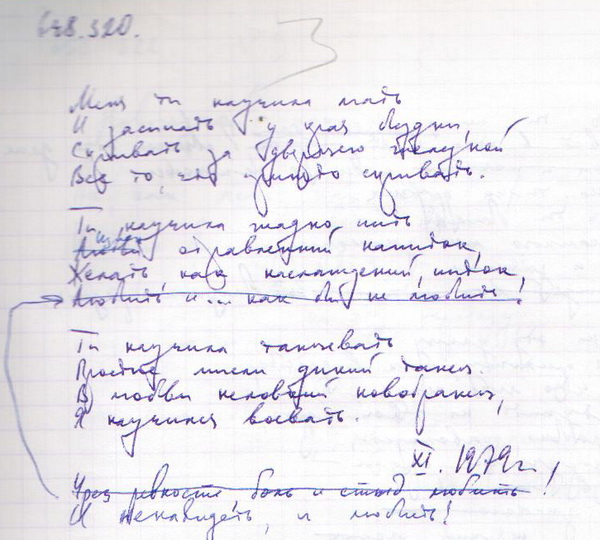 648.320.
3
Меня ты научила лгать
И засыпать у края будки,
Скрывать за дверью
Всё то, что принято скрывать.
Ты научила жадно пить
Любви отравленный напиток,
Желать, как наслаждений, пыток,
Любить и... как бы не любить!
Ты научила танцевать
Простые мысли дикий танец.
В любви неловкий новобранец,
Я научился воевать.
XI. 1979 г.
Чрез ревность, боль и стыд любить!
И ненавидеть, и любить!